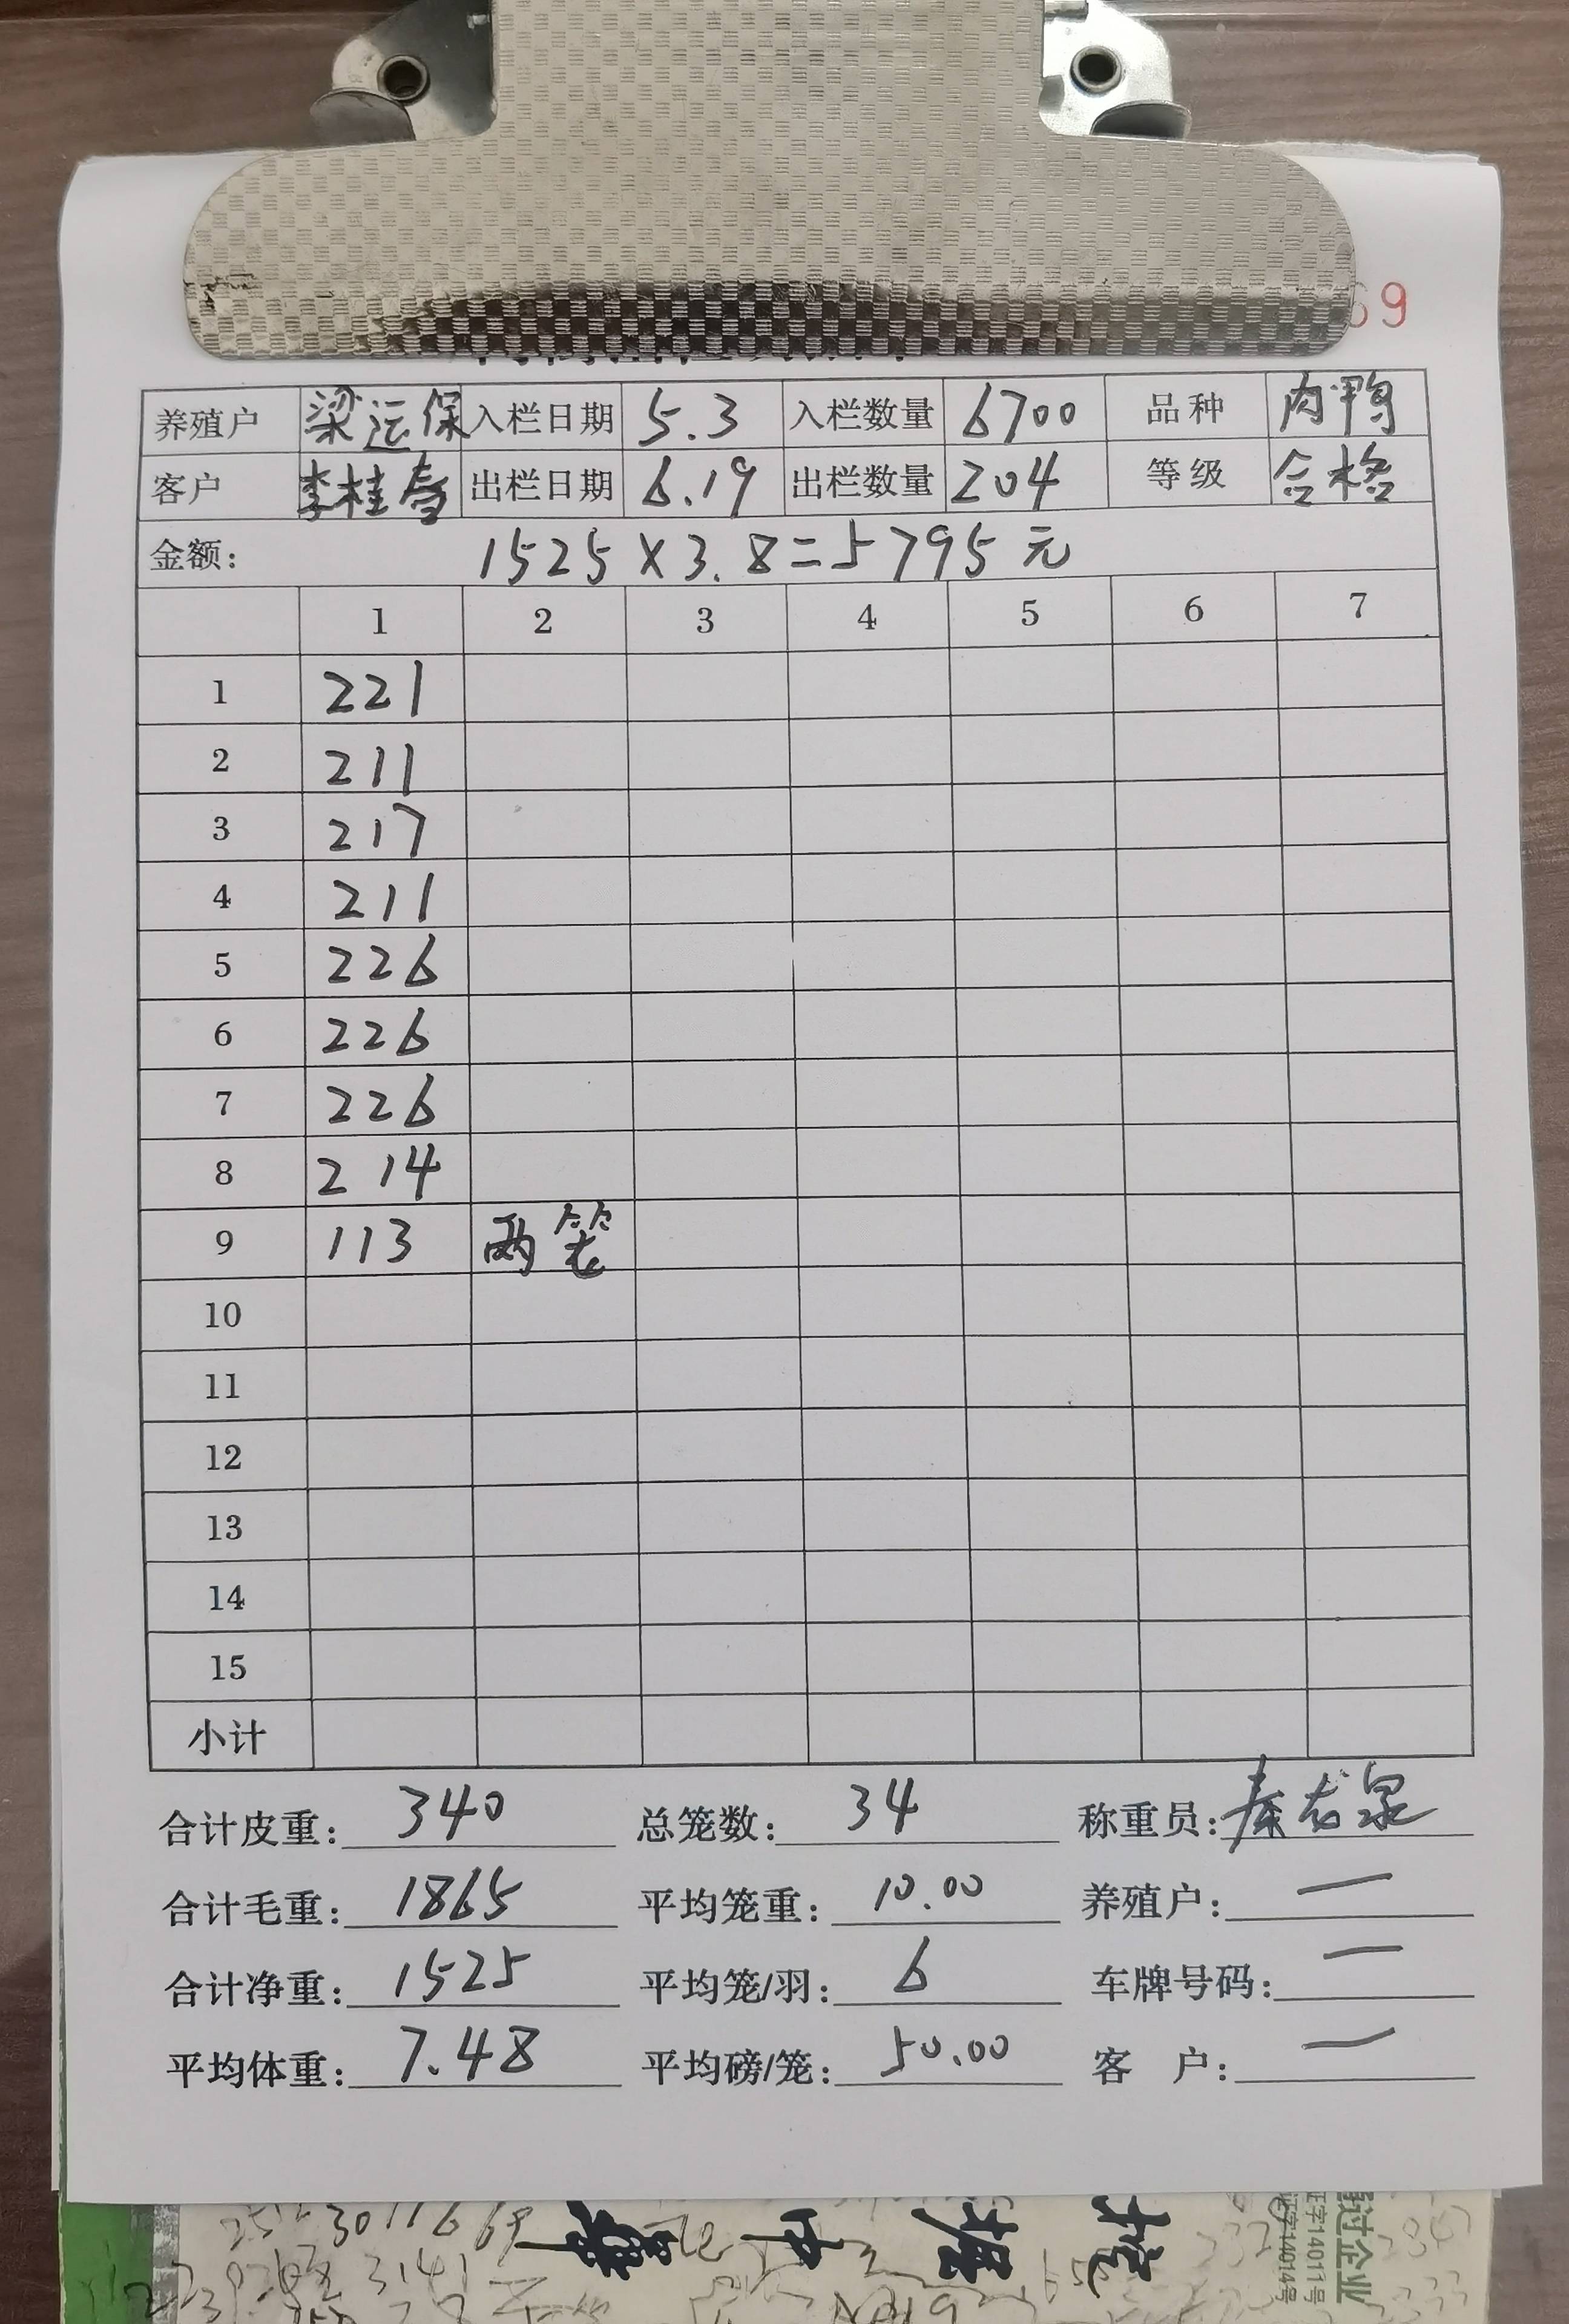 69
养殖户 梁运保 入栏日期 5.3 入栏数量 6700 品种 肉鸭
客户 李桂春 出栏日期 6.19 出栏数量 204 等级 合格
金额: 1525×3.8=5795元
1 2 3 4 5 6 7
1 221
2 211
3 217
4 211
5 226
6 226
7 226
8 214
9 113 两笼
10
11
12
13
14
15
小计
合计皮重: 340 总笼数: 34 称重员: 秦
合计毛重: 1865 平均笼重: 10.00 养殖户: 一
合计净重: 1525 平均笼/羽: 6 车牌号码: 一
平均体重: 7.48 平均磅/笼: 50.00 客 户: 一